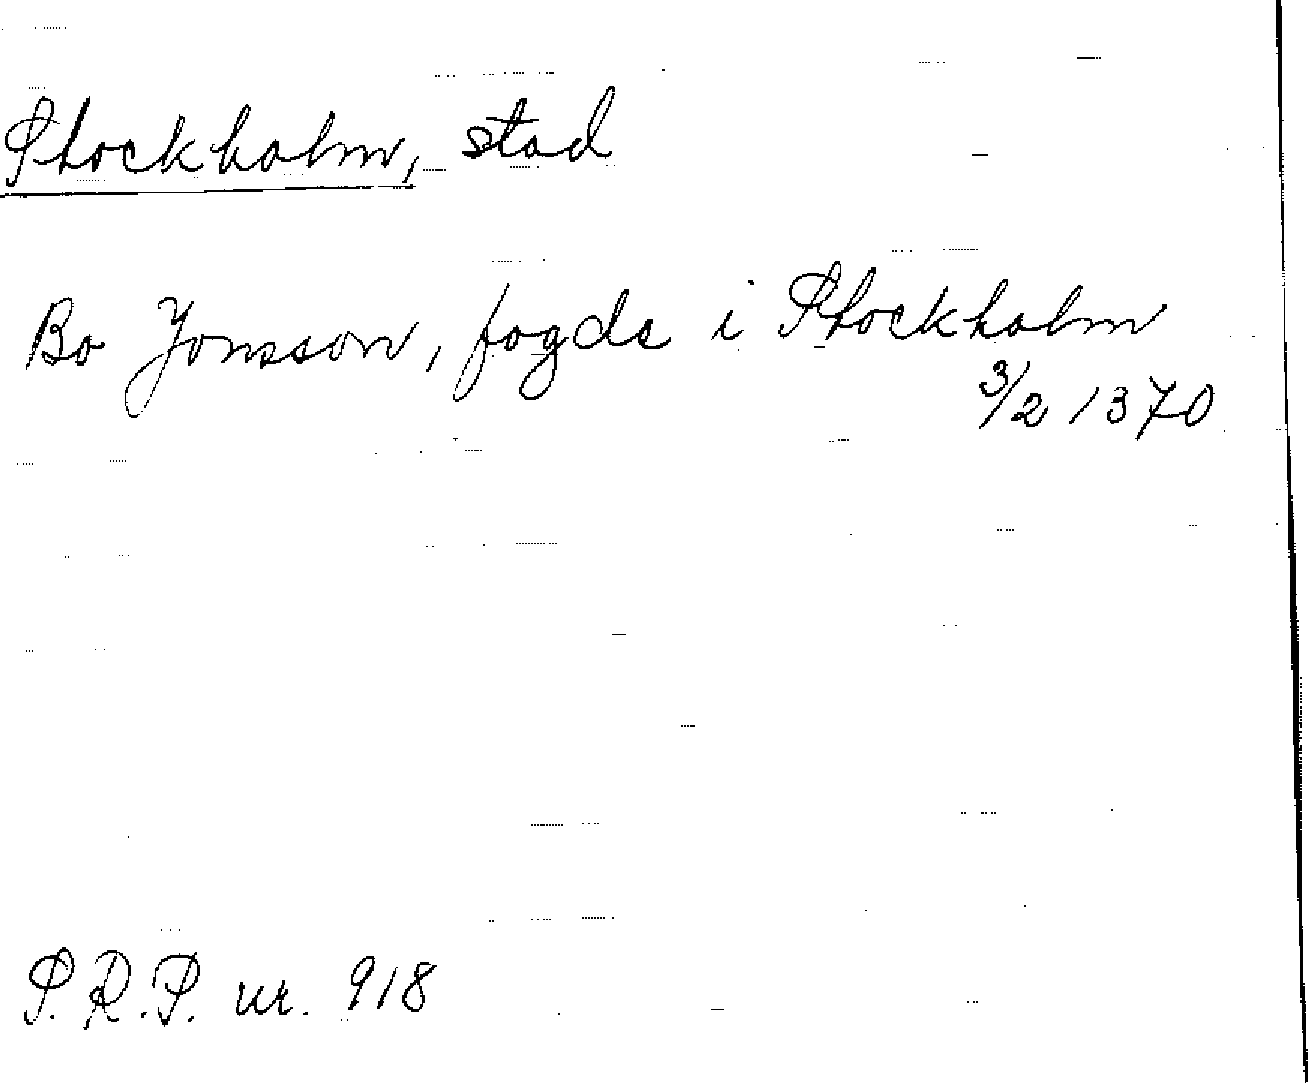 Stockholm, stad
Bo Jonsson, fogde i Stockholm
3/2 1370
S.R.P. nr. 918